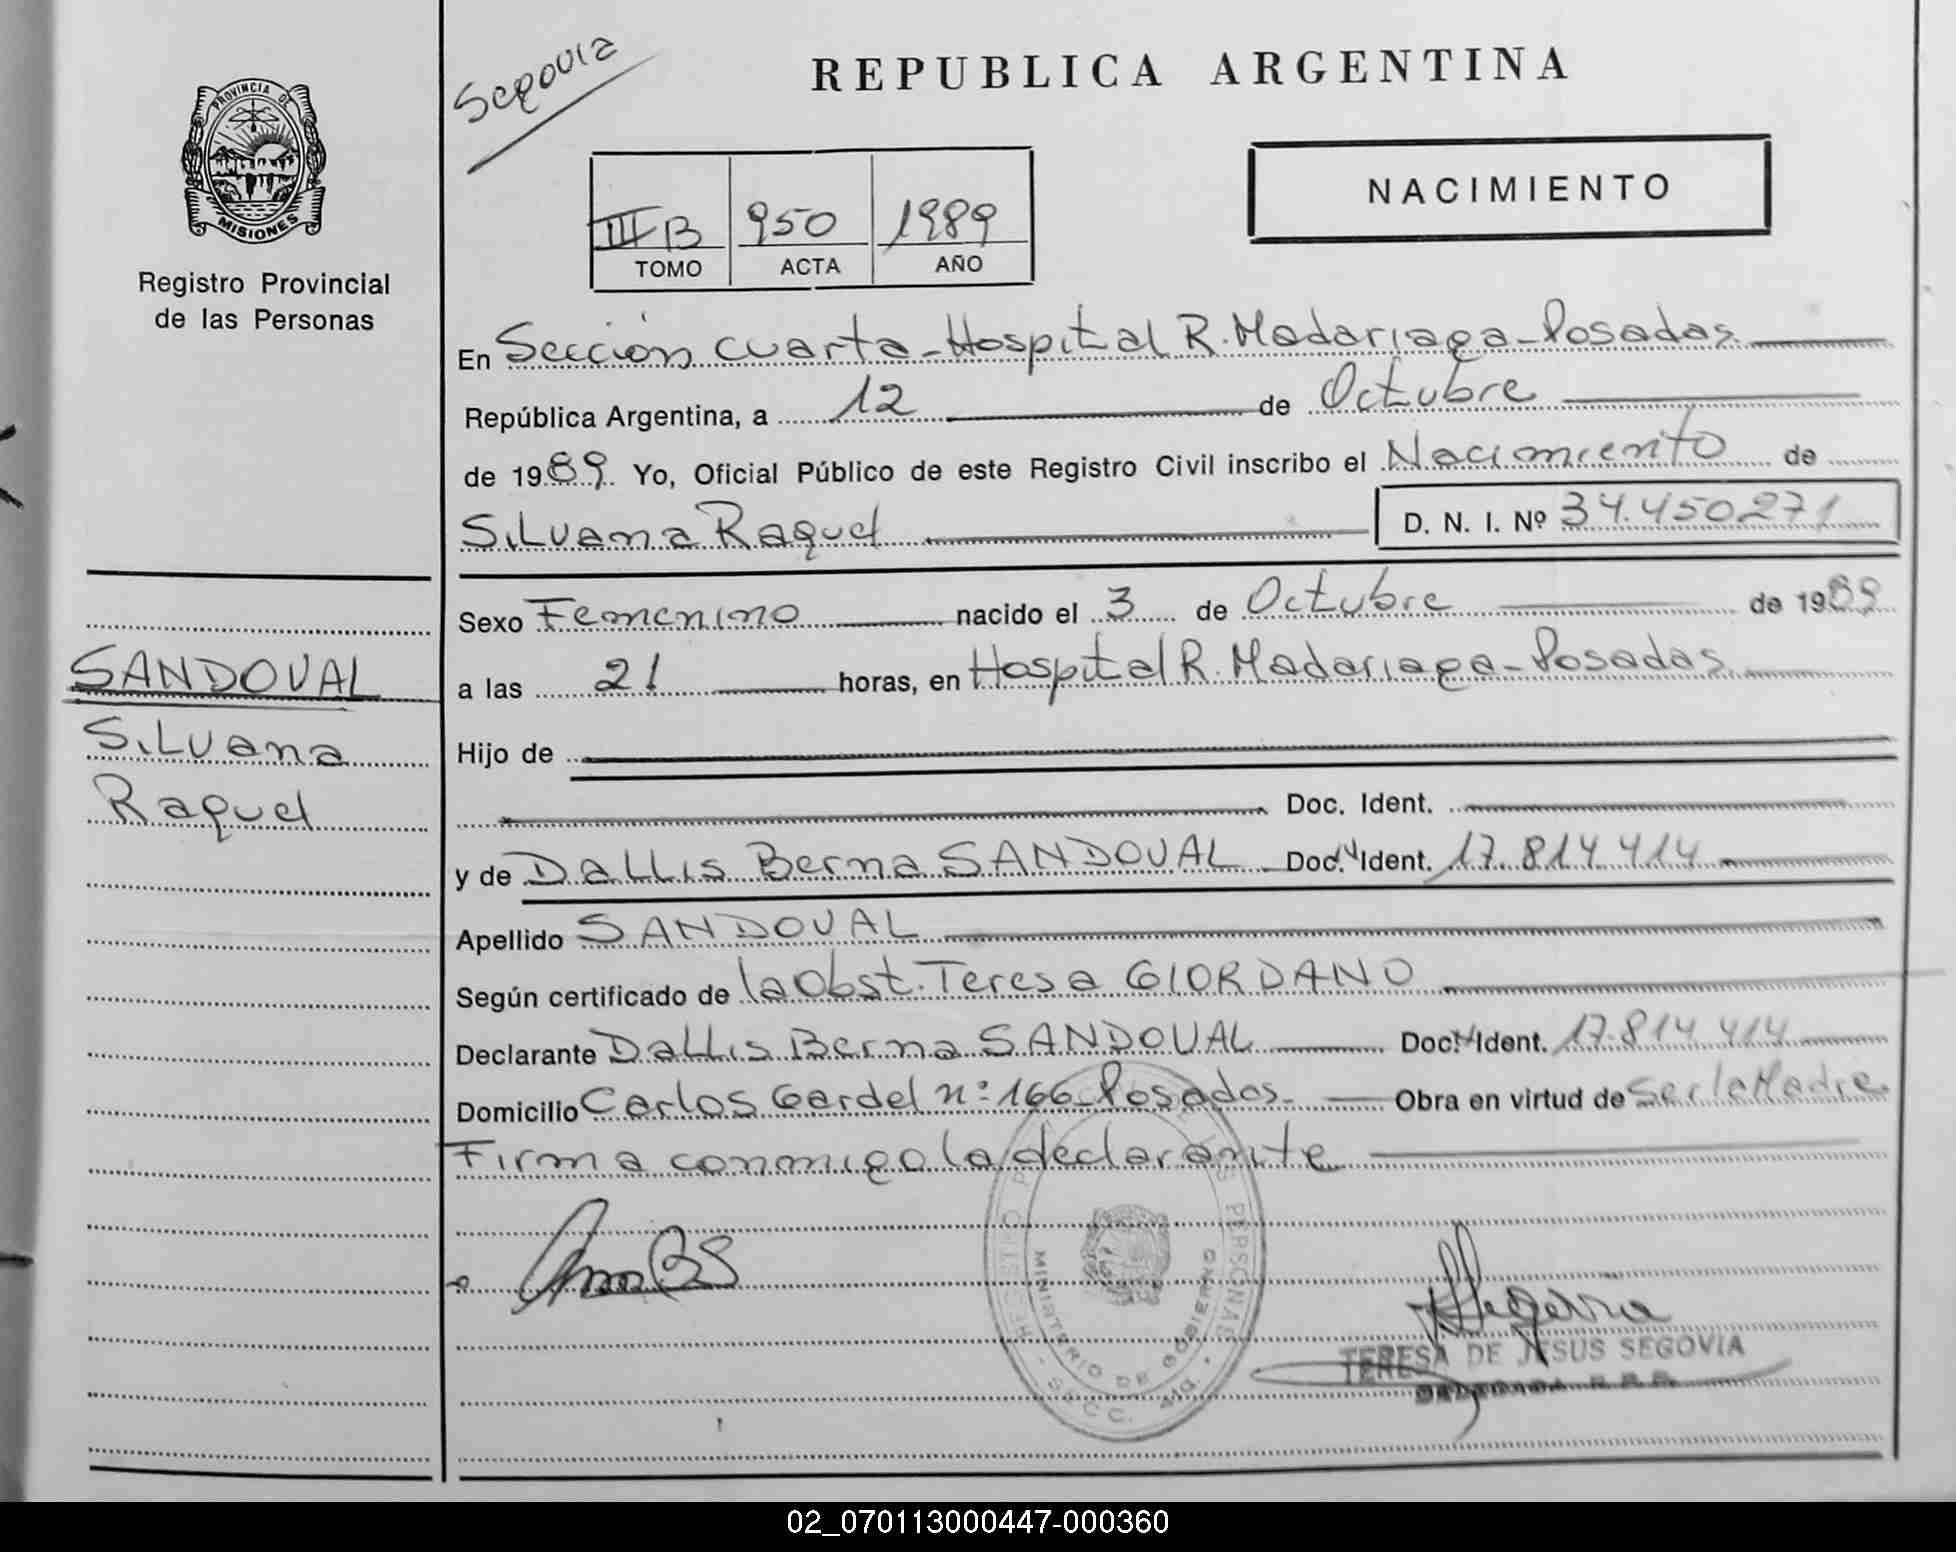 Segovia
REPUBLICA ARGENTINA
PROVINCIA DE
MISIONES
Registro Provincial
de las Personas
NACIMIENTO
III B 950 1989
TOMO ACTA AÑO
En Sección cuarta - Hospital R. Madariaga - Posadas
República Argentina, a 12 de Octubre
de 1989. Yo, Oficial Público de este Registro Civil inscribo el Nacimiento de
Silvana Raquel D. N. I. Nº 34.450271
Sexo Femenino nacido el 3 de Octubre de 1989
SANDOVAL
Silvana
Raquel
a las 21 horas, en Hospital R. Madariaga - Posadas
Hijo de
Doc. Ident.
y de Dallis Berna SANDOVAL Doc. Ident. 17.814.414
Apellido SANDOVAL
Según certificado de la Obst. Teresa GIORDANO
Declarante Dallis Berna SANDOVAL Doc. Ident. 17.814.414
Domicilio Carlos Gardel nº 166 - Posadas. Obra en virtud de ser la Madre
Firma conmigo la declarante
MINISTERIO DE GOBIERNO
PERSONAS
SECC. 4ta.
TERESA DE JESUS SEGOVIA
02_070113000447-000360